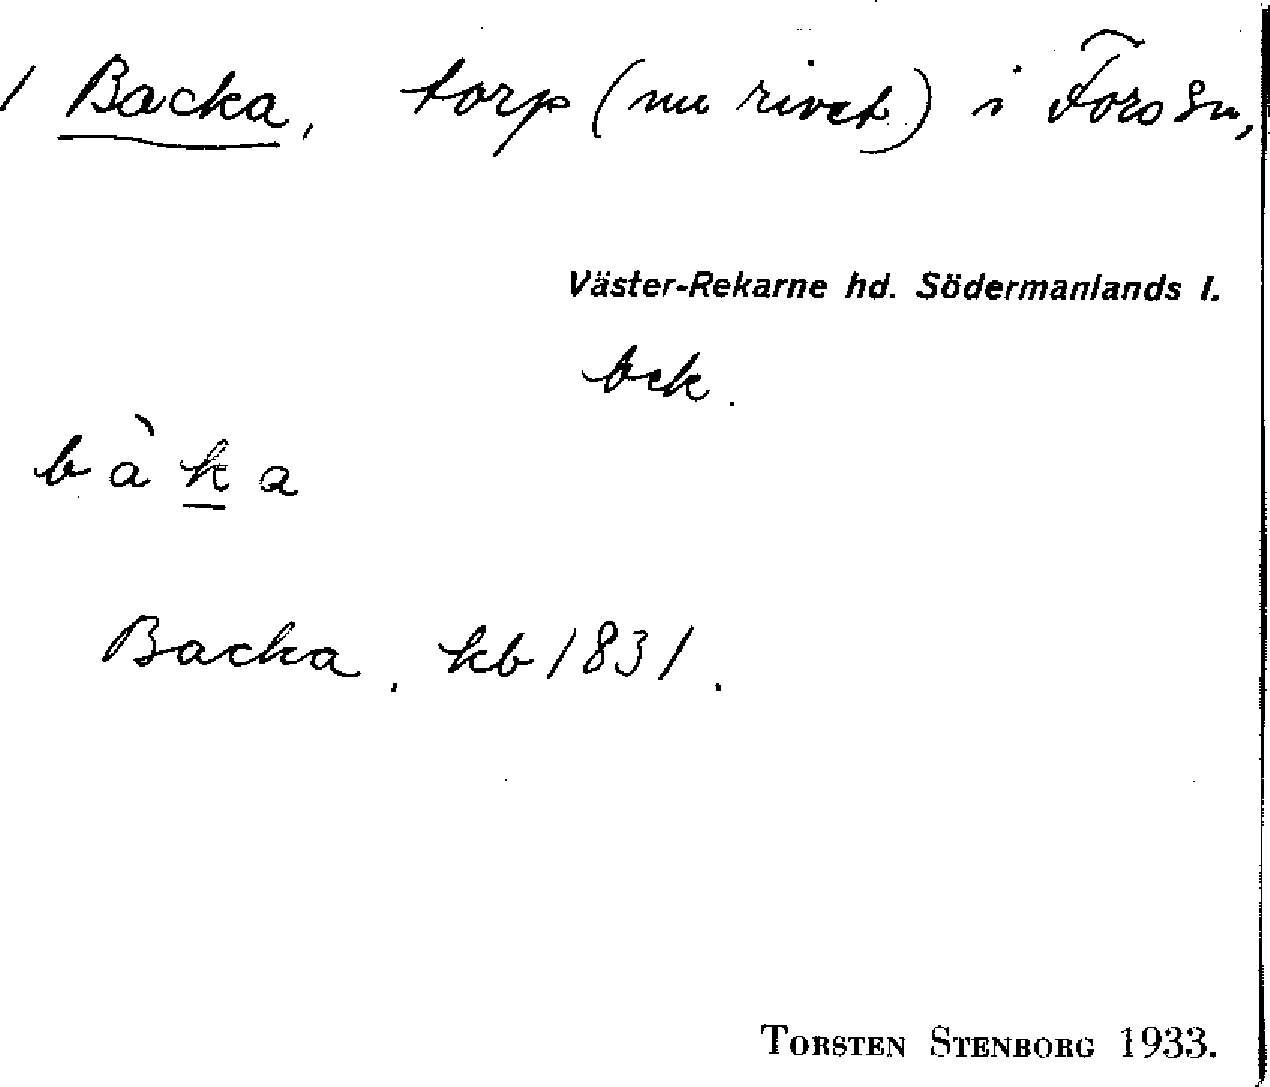 / Backa, torp (nu rivet) i Fors sn,
Väster-Rekarne hd. Södermanlands l.
bck.
bàka
Backa, kb 1831.
TORSTEN STENBORG 1933.